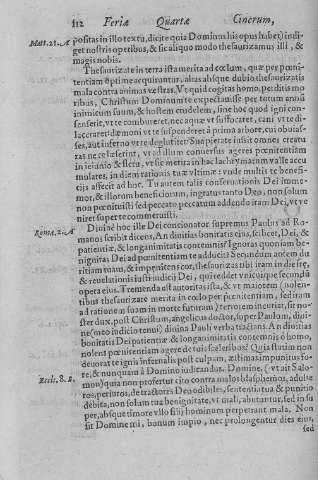 112 Feriæ Quartæ Cinerum,
Matt. 21. A
positas in illo textu, dicite quia Dominus his opus habet, indi
get nostris operibus, & sic aliquo modo thesaurizamus illi, &
magis nobis.
Thesaurizate in terra ista merita ad cœlum, quæ per pœni
tentiam optime acquiruntur, alias absque dubio thesaurizatis
mala contra animas vestras. Vt quid cogitas homo, perditis mo
ribus, Christum Dominum te expectauisse per totum annum
inimicum suum, & hostem crudelem, sine hoc quod igni con-
senserit, vt te combureret, nec aquæ vt suffocaret, cani vt te di-
laceraret, dæmoni vt te suspenderet à prima arbore, cui obuias-
ses, aut inferno vt te deglutiret? Sine pietate iusti omnes creatu
ras ne te læserint, vt ad illum conuersus ageres pœnitentiam
in ieiunio & fletu, vt sic merita in hac lachrymarum valle accu
mulares, in diem rationis tuæ vltimæ: vnde multis te benefi-
cijs affecit ad hoc. Tu autem talis conseruationis Dei imme-
mor, & illorum beneficiorum, ingratus tanto Deo, non solum
non pœnituisti sed peccato peccatum addendo iram Dei, vt ve
niret super te commeruisti.
Romæ. 2. A
Diuinè hoc ille Dei concionator supremus Paulus ad Ro-
manos scribit dicens, An diuitias bonitatis eius, scilicet, Dei, &
patientiæ, & longanimitatis contemnis? Ignoras quoniam be-
nignitas Dei ad pœnitentiam te adducit? Secundum autem du
ritiam tuam, & impœnitens cor, thesaurizas tibi iram in die iræ,
& reuelationis iusti iudicij Dei, qui reddet vnicuique secundū
opera eius. Tremenda est autoritas ista, & vt maiorem (nolen-
tibus thesaurizare merita in cœlo per pœnitentiam, sed iram
ad rationem suam in morte futuram) terrorem incutiat, sic no-
ster dux, post Christum, angelicus doctor, super Paulum, diui-
ne (meo iudicio tenui) diuina Pauli verba tractans. An diuitias
bonitatis Dei patientiæ & longanimitatis contemnis ô homo,
nolens pœnitentiam agere de tuis sceleribus? Quis statim non
deuorat te ignis infernalis post culpam, æstimas impunitus fo-
re, & nunquam à Domino iudicandus. Domine, (vt ait Salo-
Eccle. 8. B.
mon) quia non profertur cito contra malos blasphemos, adulte
ros, periuros, detractores Deo odibiles, sententia tua & punitio
debita, non solum tua benignitate, vt mali, abutantur, sed in su
per, absque timore vllo filij hominum perpetrant mala. Non
sit Domine mi, bonum impio, nec prolongentur dies eius,
sed